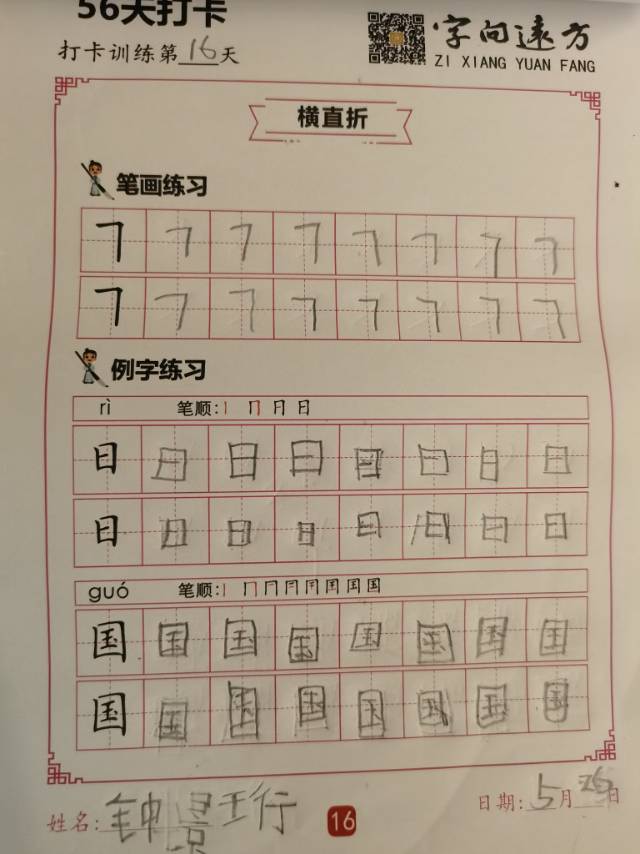 56天打卡
打卡训练第16天
字向远方
ZI XIANG YUAN FANG
横直折
笔画练习
例字练习
rì 笔顺:丨 冂 日 日
日 日 日 日 日 日 日 日
日 日 日 日 日 日 日 日
guó 笔顺:
国 国 国 国 国 国 国 国
国 国 国 国 国 国 国 国
姓名:钟景珩
16
日期:5月26日